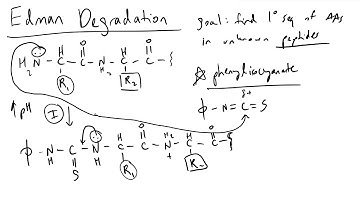 Edman Degradation
goal: find 1° seq of AAs
in unknown peptides
H2N - C - C - N - C - C
H O H2 H O
R1 R2
phenylisocyanate
δ+
ϕ - N = C = S
↑ pH I
ϕ - N - C - N - C - C - N - C - C
H S H H O H2 + H O
R1 R2